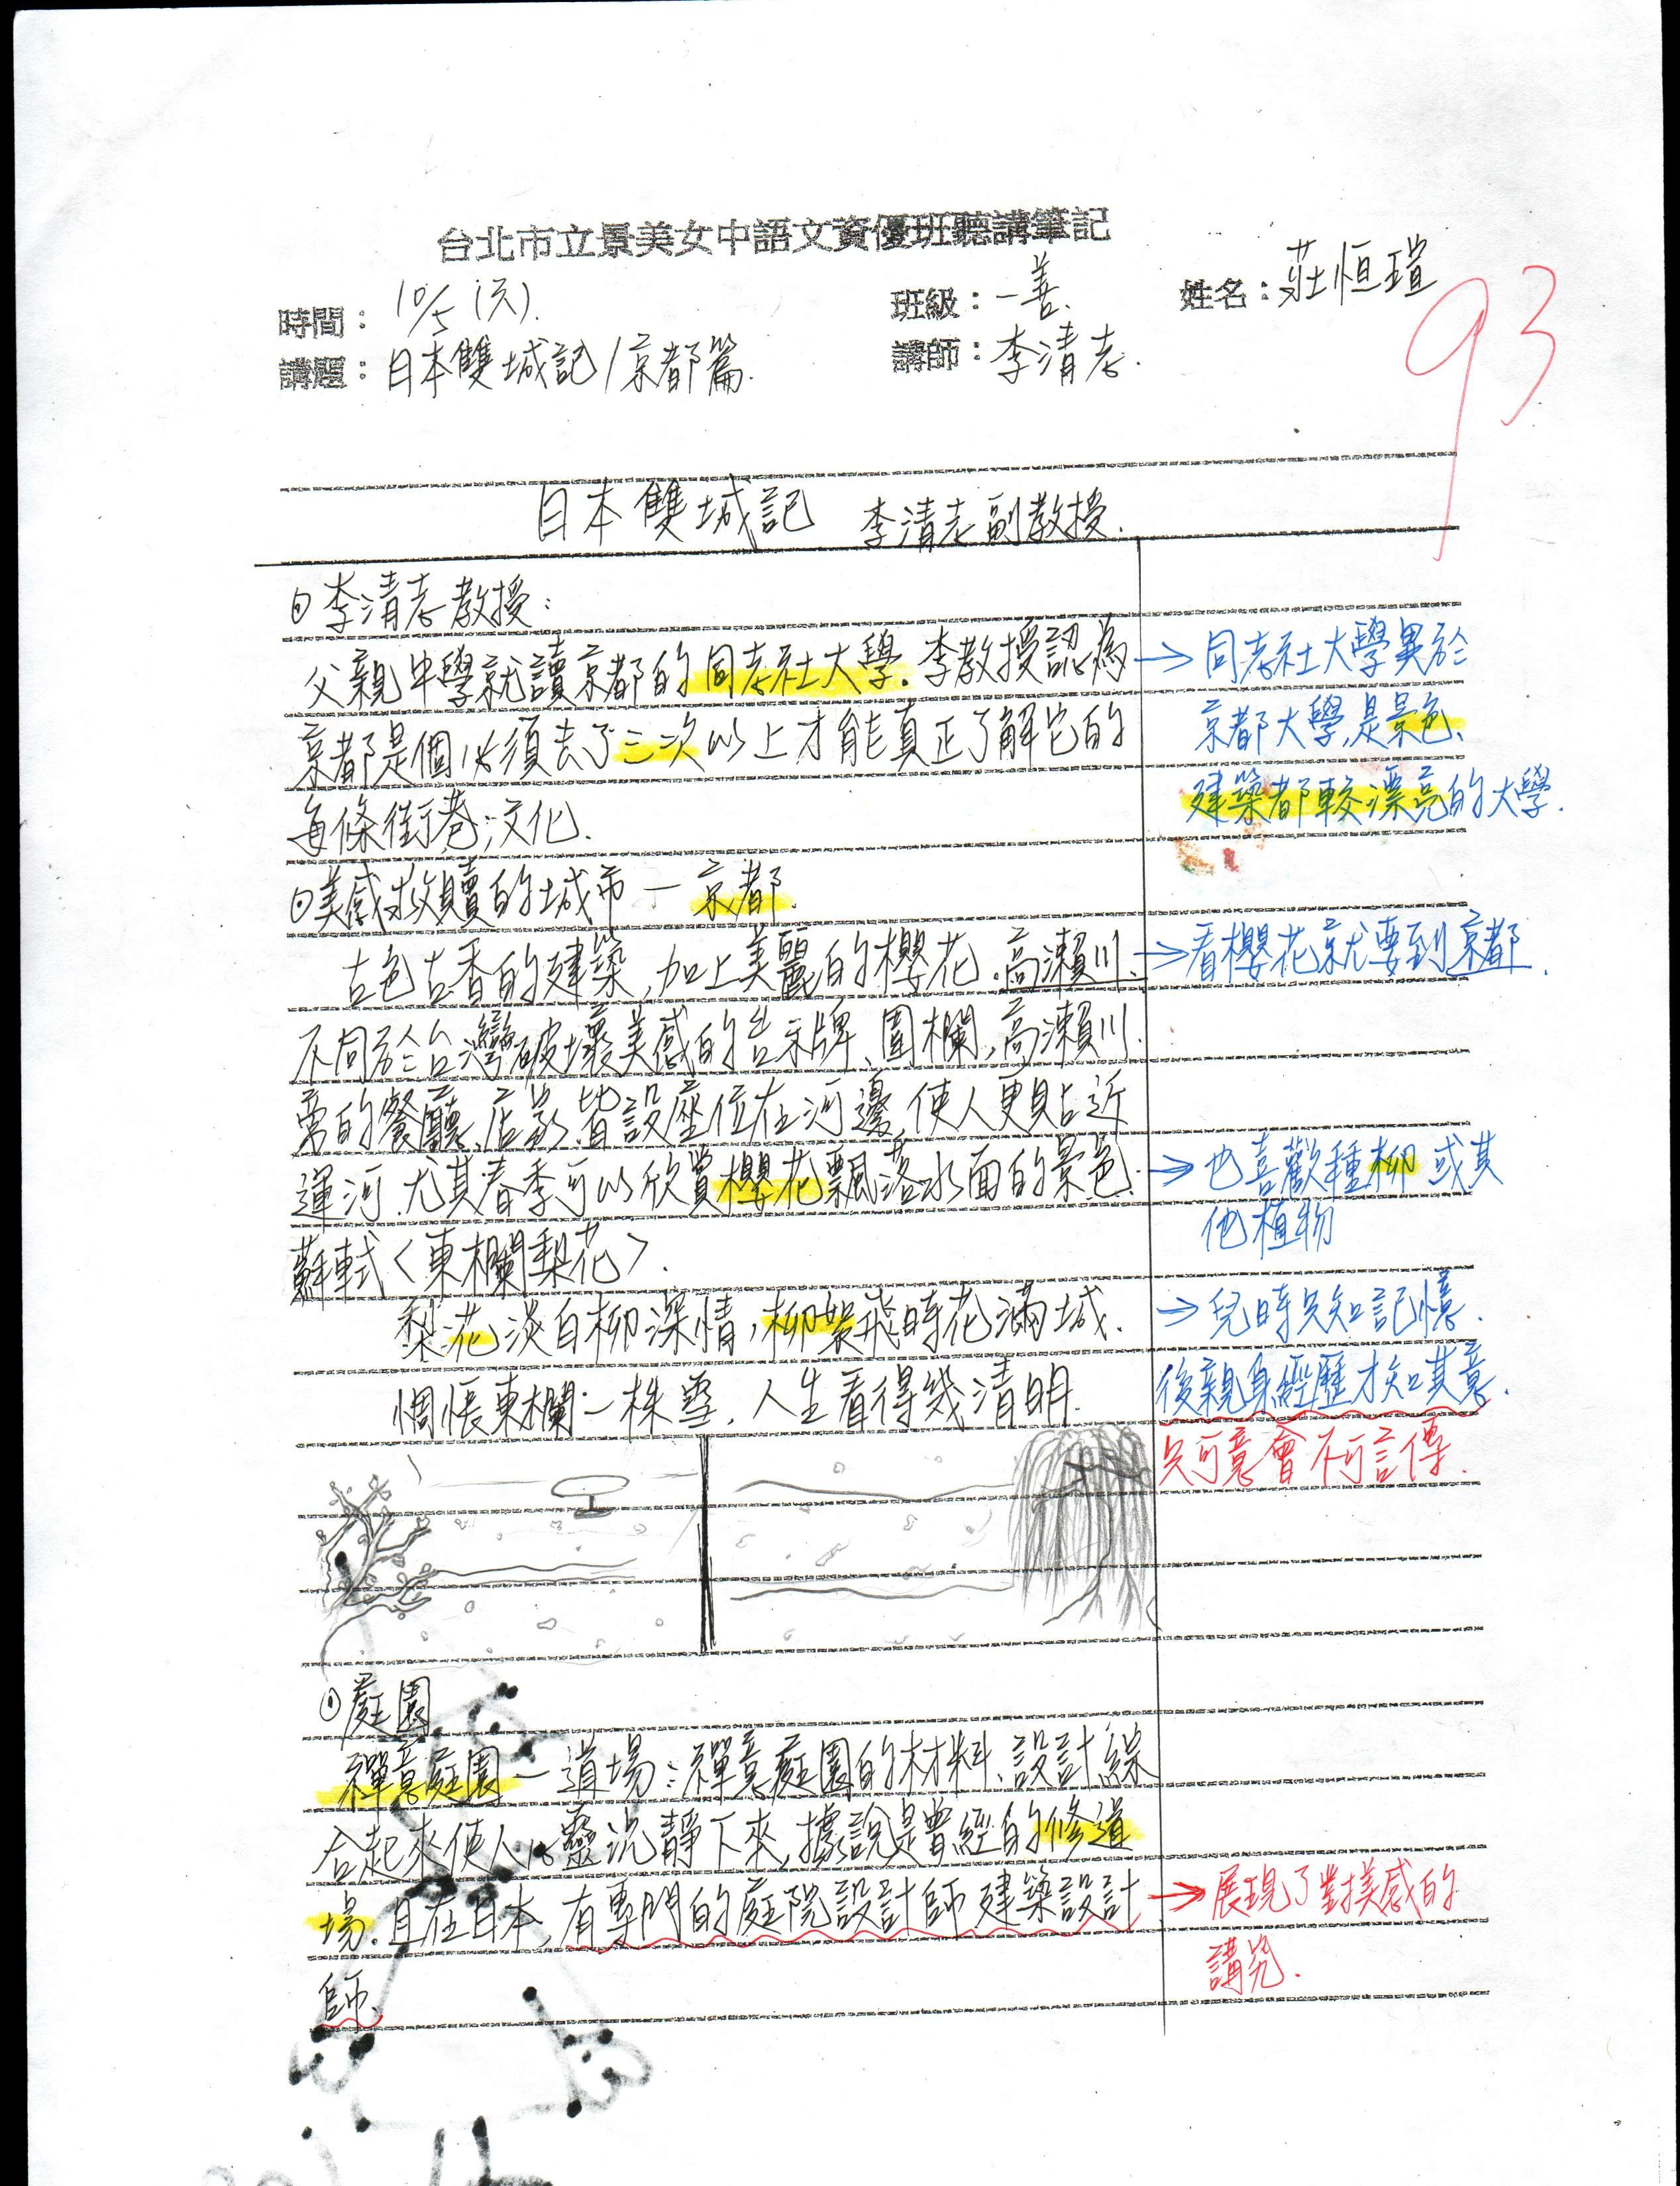 台北市立景美女中語文資優班聽講筆記
時間：10/5 (六).
班級：一善.
姓名：莊恒瑄
93
講題：日本雙城記/京都篇.
講師：李清志.
日本雙城記 李清志副教授.
李清志教授：
父親中學就讀京都的同志社大學.李教授認為
→同志社大學異於
京都是個必須去了三次以上才能真正了解它的
京都大學,是景色、
每條街巷、文化.
建築都較漂亮的大學.
美感救贖的城市－京都.
古色古香的建築,加上美麗的櫻花.高瀨川.
→看櫻花就要到京都.
不同於台灣破壞美感的告示牌、圍欄,高瀨川
旁的餐廳、店家皆設座位在河邊,使人更貼近
運河.尤其春季可以欣賞櫻花飄落水面的景色.
→也喜歡種柳或其
他植物
蘇軾〈東欄梨花〉.
梨花淡白柳深情,柳絮飛時花滿城.
→兒時只知記憶.
惆悵東欄一株雪,人生看得幾清明.
後親身經歷才知其意.
只可意會不可言傳.
庭園
禪意庭園－道場：禪意庭園的材料、設計綜
合起來使人心靈沉靜下來,據說是曾經的修道
場.且在日本,有專門的庭院設計師建築設計
→展現了對美感的
講究.
師.